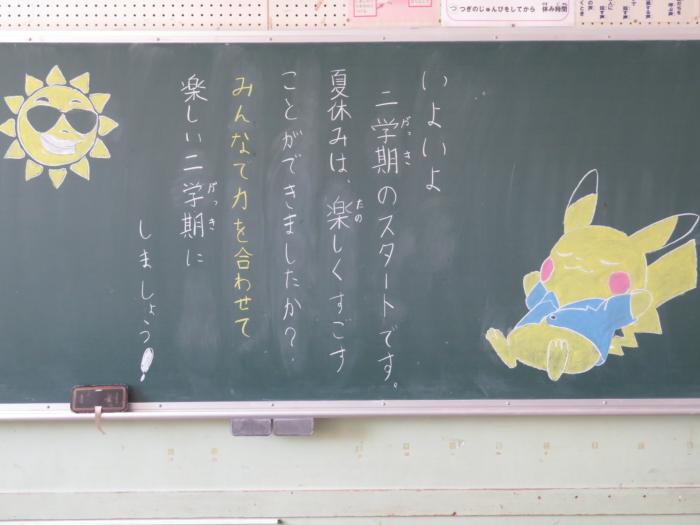 つぎのじゅんびをしてから 休み時間
いよいよ
二学期のスタートです。
がっき
夏休みは、楽しくすごす
たの
ことができましたか？
みんなで力を合わせて
楽しい二学期に
がっき
しましょう！